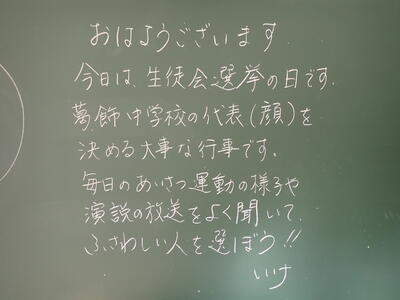 おはようございます
今日は、生徒会選挙の日です.
葛飾中学校の代表(顔)を
決める大事な行事です。
毎日のあいさつ運動の様子や
演説の放送をよく聞いて、
ふさわしい人を選ぼう!!
いけ